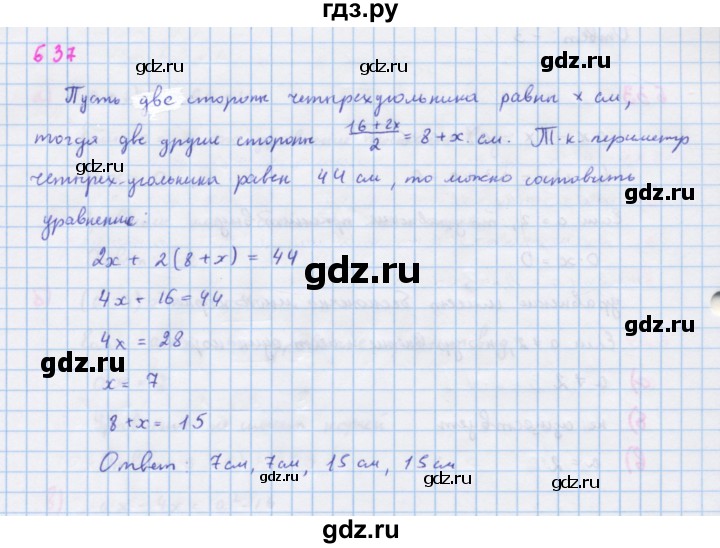 гдз.ру
637
gdz.ru
gdz.ru
Пусть две стороны четырехугольника равны x см,
gdz.ru
gdz.ru
тогда две другие стороны (16+2x)/2 = 8+x см. Т.к. периметр
четырех-угольника равен 44 см, то можно составить
gdz.ru
gdz.ru
уравнение:
2x + 2(8+x) = 44
gdz.ru
4x + 16 = 44
gdz.ru
gdz.ru
4x = 28
x = 7
8+x = 15
gdz.ru
gdz.ru
Ответ: 7см, 7см, 15 см, 15 см
gdz.ru
gdz.ru
gdz.ru